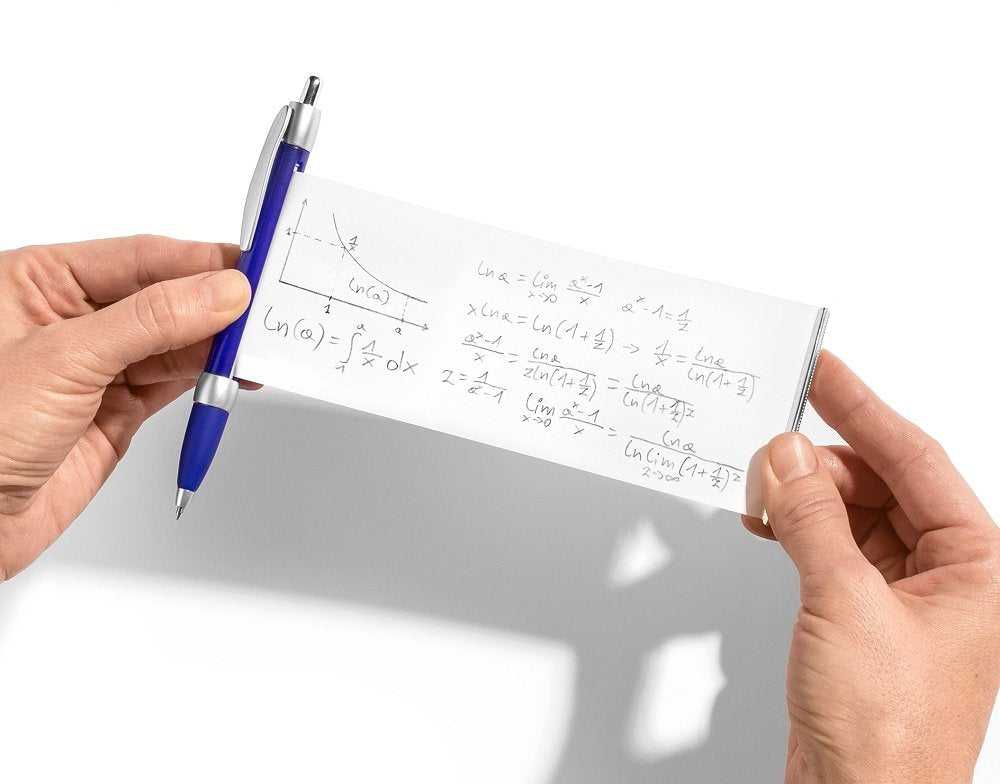 1
1/x
ln(a)
1
a
ln(a) = ∫₁ᵃ 1/x dx
ln a = lim x→0 (aˣ-1)/x   aˣ-1 = 1/z
x ln a = ln(1+1/z) → 1/x = ln a/ln(1+1/z)
(aˣ-1)/x = ln a/(z ln(1+1/z)) = ln a/ln(1+1/z)ᶻ
z = 1/(aˣ-1)   lim x→0 (aˣ-1)/x = ln a/(ln lim z→∞ (1+1/z)ᶻ)